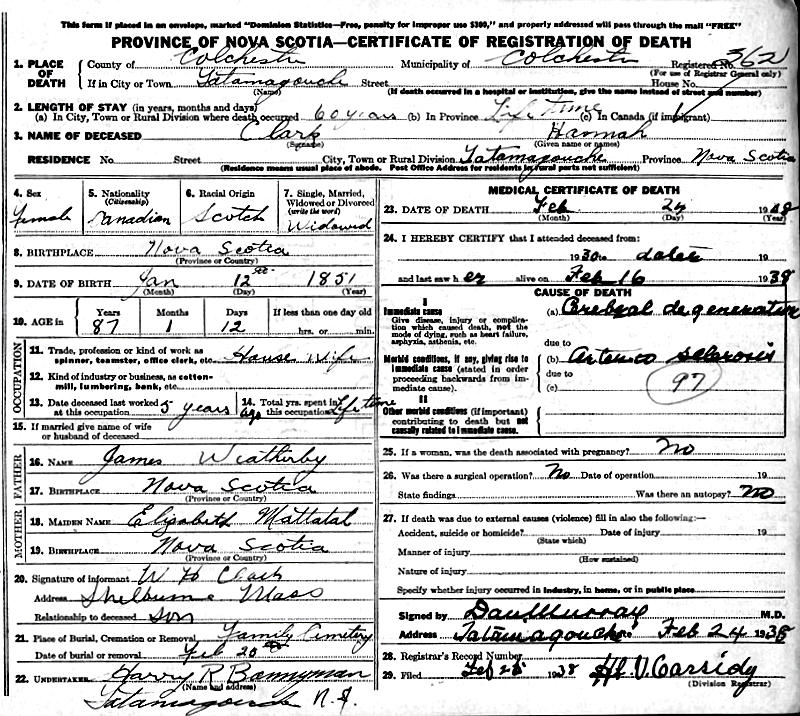 This form if placed in an envelope, marked "Dominion Statistics—Free, penalty for improper use $300," and properly addressed will pass through the mail "FREE"
PROVINCE OF NOVA SCOTIA—CERTIFICATE OF REGISTRATION OF DEATH
1. PLACE OF DEATH County of Colchester Municipality of Colchester Registered No. 362
(For use of Registrar General only)
If in City or Town Tatamagouche Street House No.
(Name) (If death occurred in a hospital or institution, give the name instead of street and number)
2. LENGTH OF STAY (in years, months and days)
(a) In City, Town or Rural Division where death occurred 60 years (b) In Province Life time (c) In Canada (if immigrant)
3. NAME OF DECEASED Clark Hannah
(Surname) (Given name or names)
RESIDENCE No. Street City, Town or Rural Division Tatamagouche Province Nova Scotia
(Residence means usual place of abode. Post Office Address for residents in rural parts not sufficient)
4. Sex Female
5. Nationality (Citizenship) Canadian
6. Racial Origin Scotch
7. Single, Married, Widowed or Divorced (write the word) Widowed
8. BIRTHPLACE Nova Scotia
(Province or Country)
9. DATE OF BIRTH Jan 12 1851
(Month) (Day) (Year)
10. AGE IN Years Months Days If less than one day old
87 1 12 hrs. or min.
OCCUPATION
11. Trade, profession or kind of work as spinner, teamster, office clerk, etc. House Wife
12. Kind of industry or business, as cotton-mill, lumbering, bank, etc.
13. Date deceased last worked at this occupation 5 years ago
14. Total yrs. spent in this occupation Life time
15. If married give name of wife or husband of deceased
FATHER
16. NAME James Weatherby
17. BIRTHPLACE Nova Scotia
(Province or Country)
MOTHER
18. MAIDEN NAME Elizabeth Mattatal
19. BIRTHPLACE Nova Scotia
(Province or Country)
20. Signature of informant W H Clark
Address Shelburne Mass
Relationship to deceased son
21. Place of Burial, Cremation or Removal Family Cemetery
Date of burial or removal Feb
22. UNDERTAKER Harry R Bonnyman
(Name and address)
Tatamagouche N.S.
MEDICAL CERTIFICATE OF DEATH
23. DATE OF DEATH Feb 24 1938
(Month) (Day) (Year)
24. I HEREBY CERTIFY that I attended deceased from:
1930 to date 19
and last saw her alive on Feb 16 1938
CAUSE OF DEATH
I
Immediate cause
Give disease, injury or complication which caused death, not the mode of dying, such as heart failure, asphyxia, asthenia, etc.
(a) Cerebral degeneration
due to
Morbid conditions, if any, giving rise to immediate cause (stated in order proceeding backwards from immediate cause).
(b) Arterio sclerosis
due to
(c)
97
II
Other morbid conditions (if important) contributing to death but not causally related to immediate cause.
25. If a woman, was the death associated with pregnancy? No
26. Was there a surgical operation? No Date of operation 19
State findings Was there an autopsy? No
27. If death was due to external causes (violence) fill in also the following:—
Accident, suicide or homicide? Date of injury 19
(State which)
Manner of injury
(How sustained)
Nature of injury
Specify whether injury occurred in industry, in home, or in public place
Signed by Dan Murray M.D.
Address Tatamagouche Feb 24 1938
28. Registrar's Record Number
29. Filed Feb 25 1938 H. V. Cassidy
(Division Registrar)